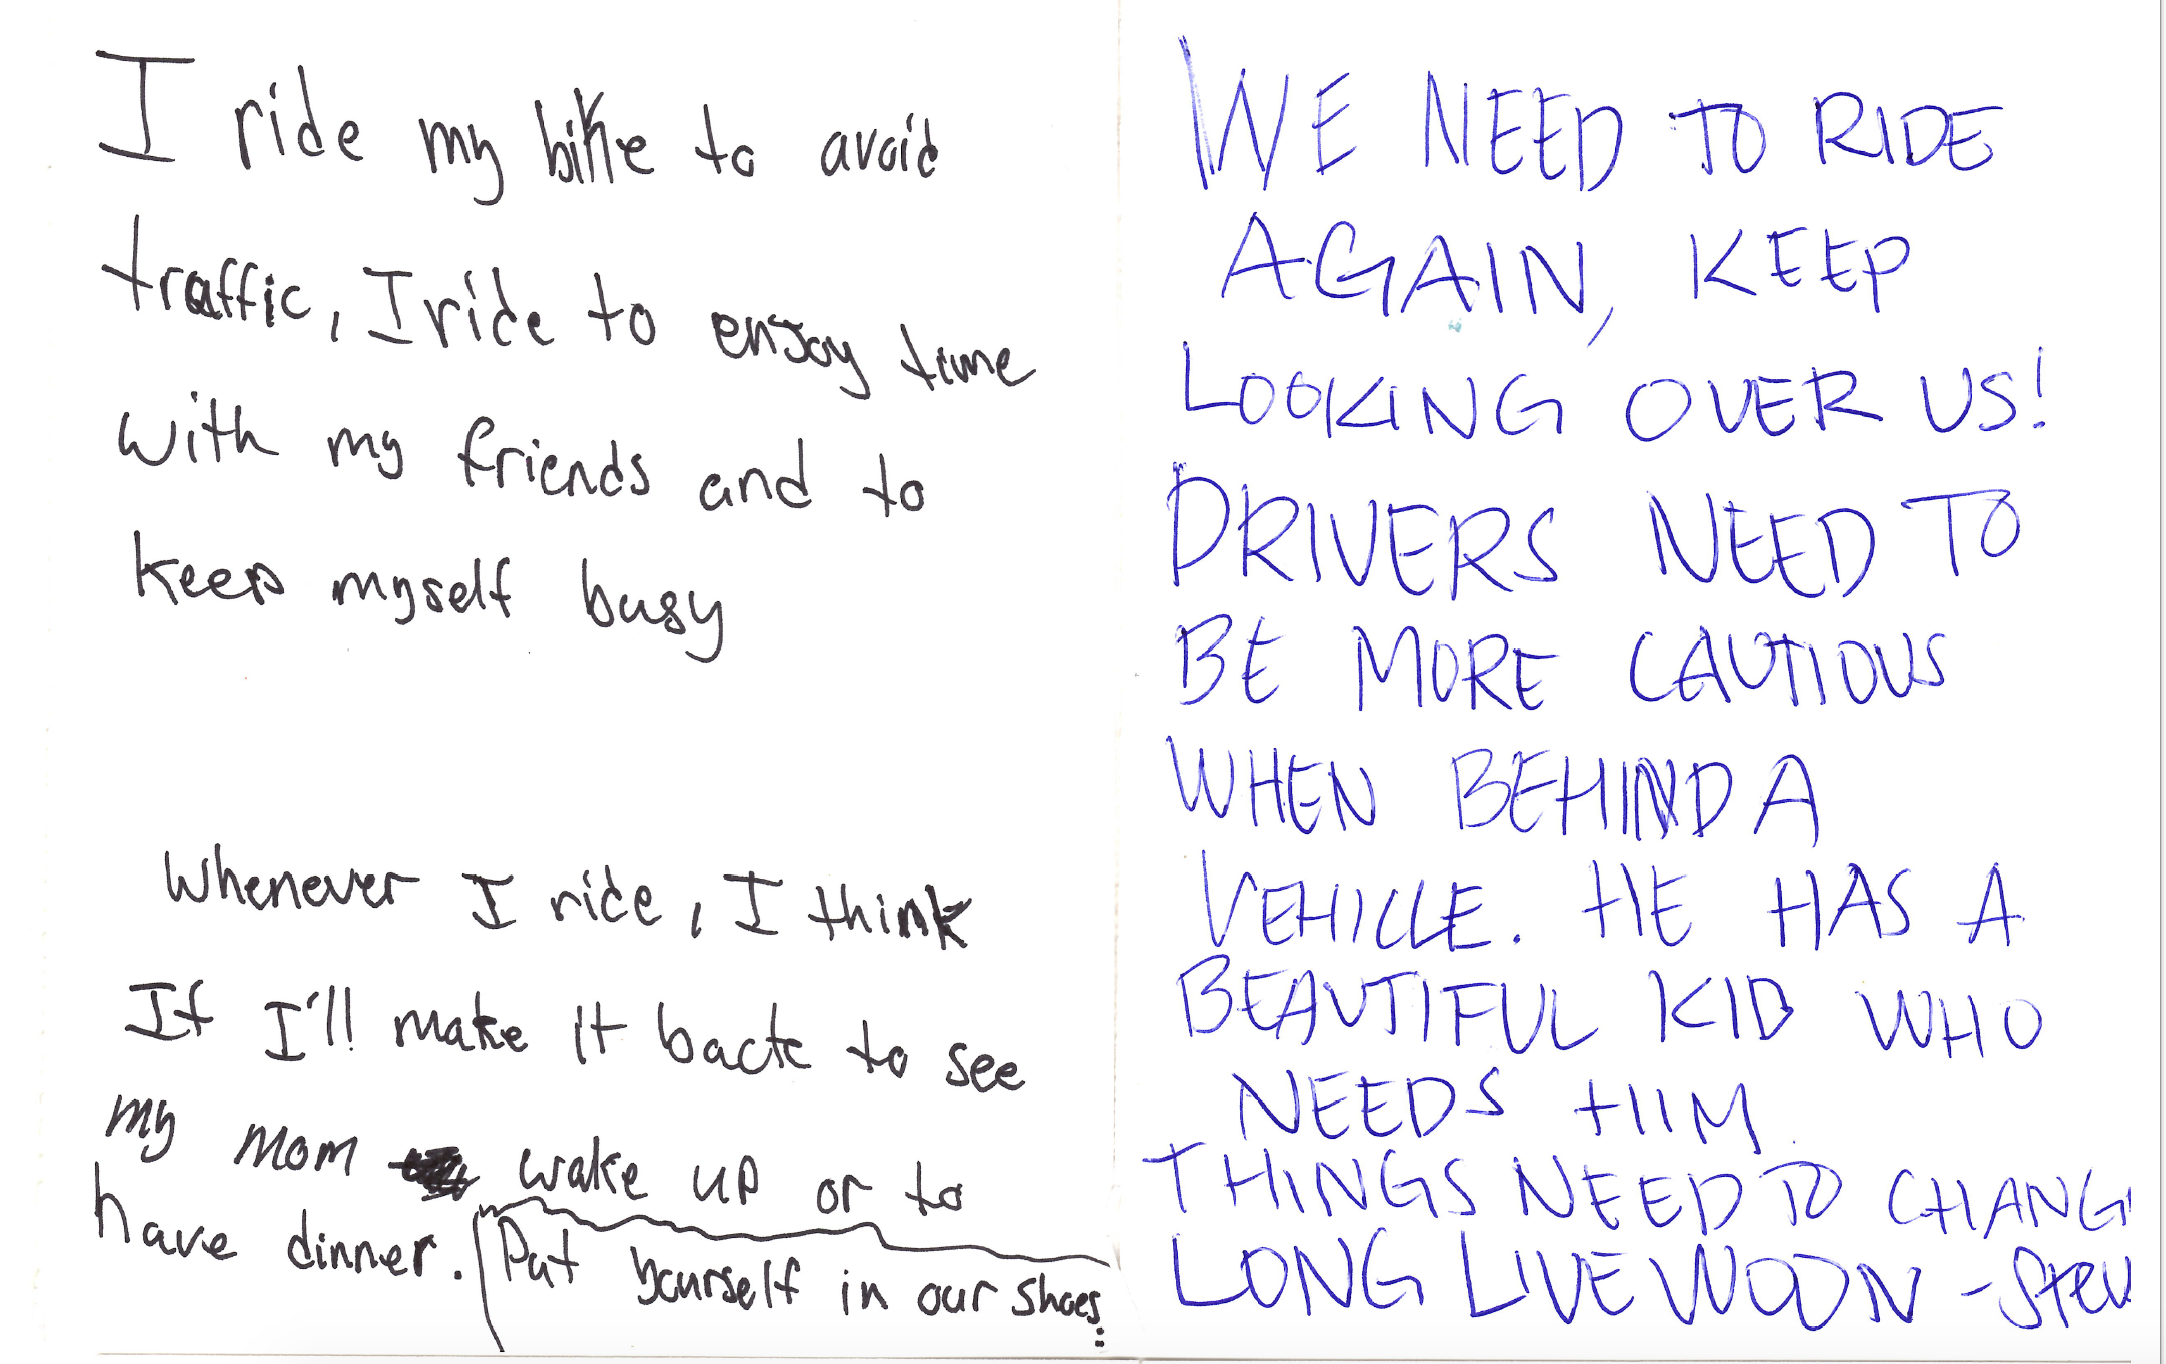 I ride my bike to avoid
traffic, I ride to enjoy time
with my friends and to
keep myself busy
Whenever I ride, I think
If I'll make it back to see
my mom wake up or to
have dinner.
Put yourself in our shoes
WE NEED TO RIDE
AGAIN, KEEP
LOOKING OVER US!
DRIVERS NEED TO
BE MORE CAUTIOUS
WHEN BEHIND A
VEHICLE. HE HAS A
BEAUTIFUL KID WHO
NEEDS HIM.
THINGS NEED TO CHANG
LONG LIVE WOON -Stev